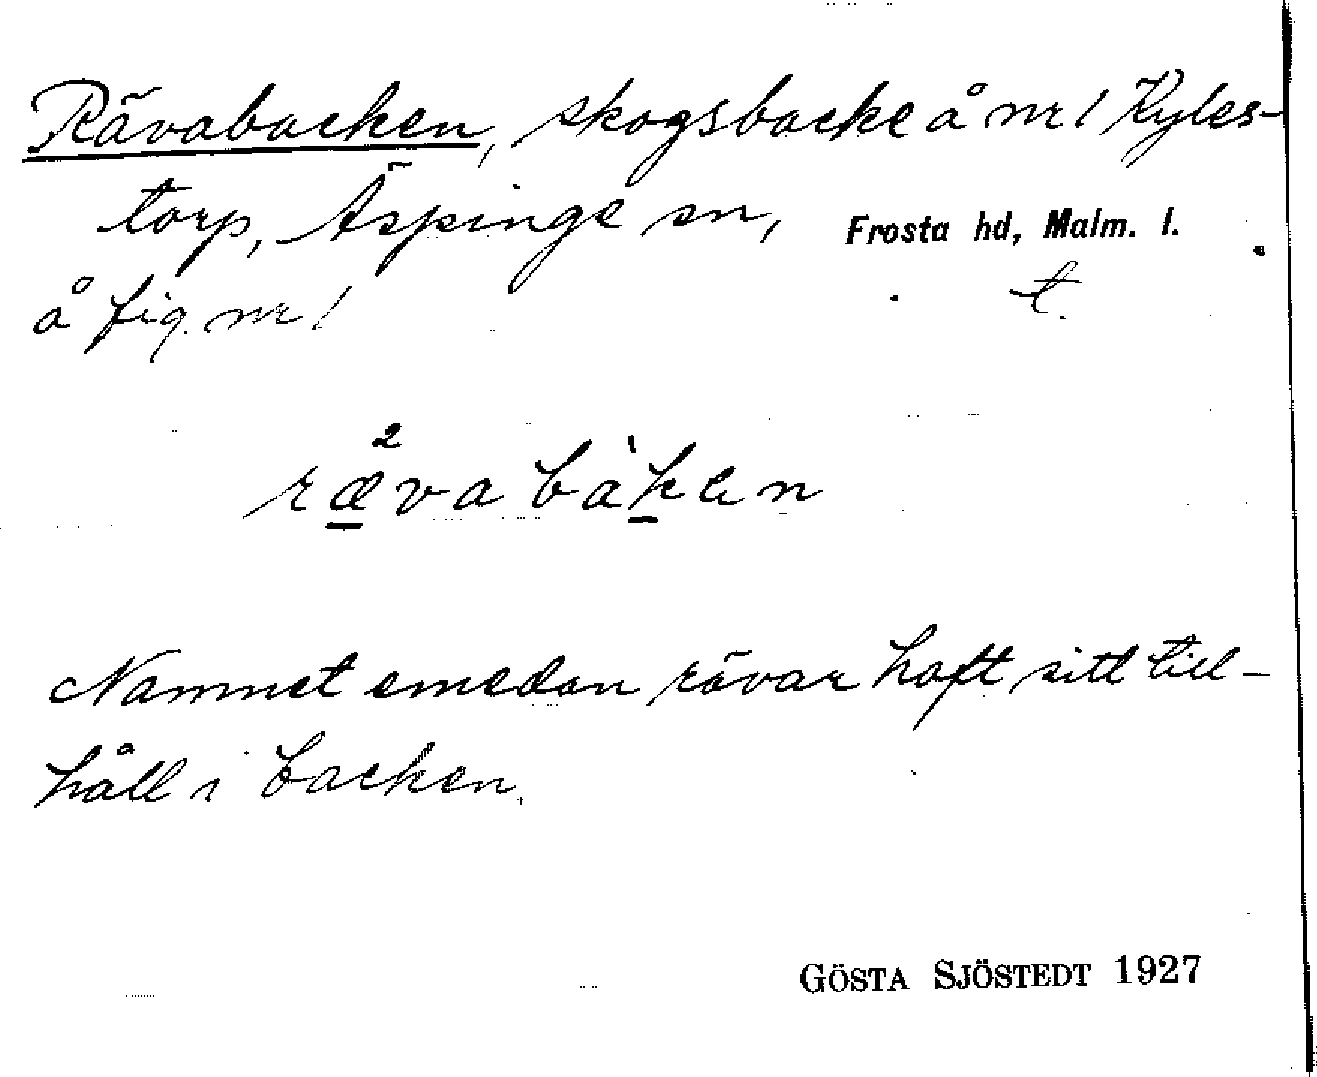 Rävabacken, skogsbacke å nr 1 Kyles-
torp, Äspinge sn, Frosta hd, Malm. l.
å fig. nr 1 t.
2
rævabàken
Namnet emedan rävar haft sitt till-
håll i backen.
GÖSTA SJÖSTEDT 1927